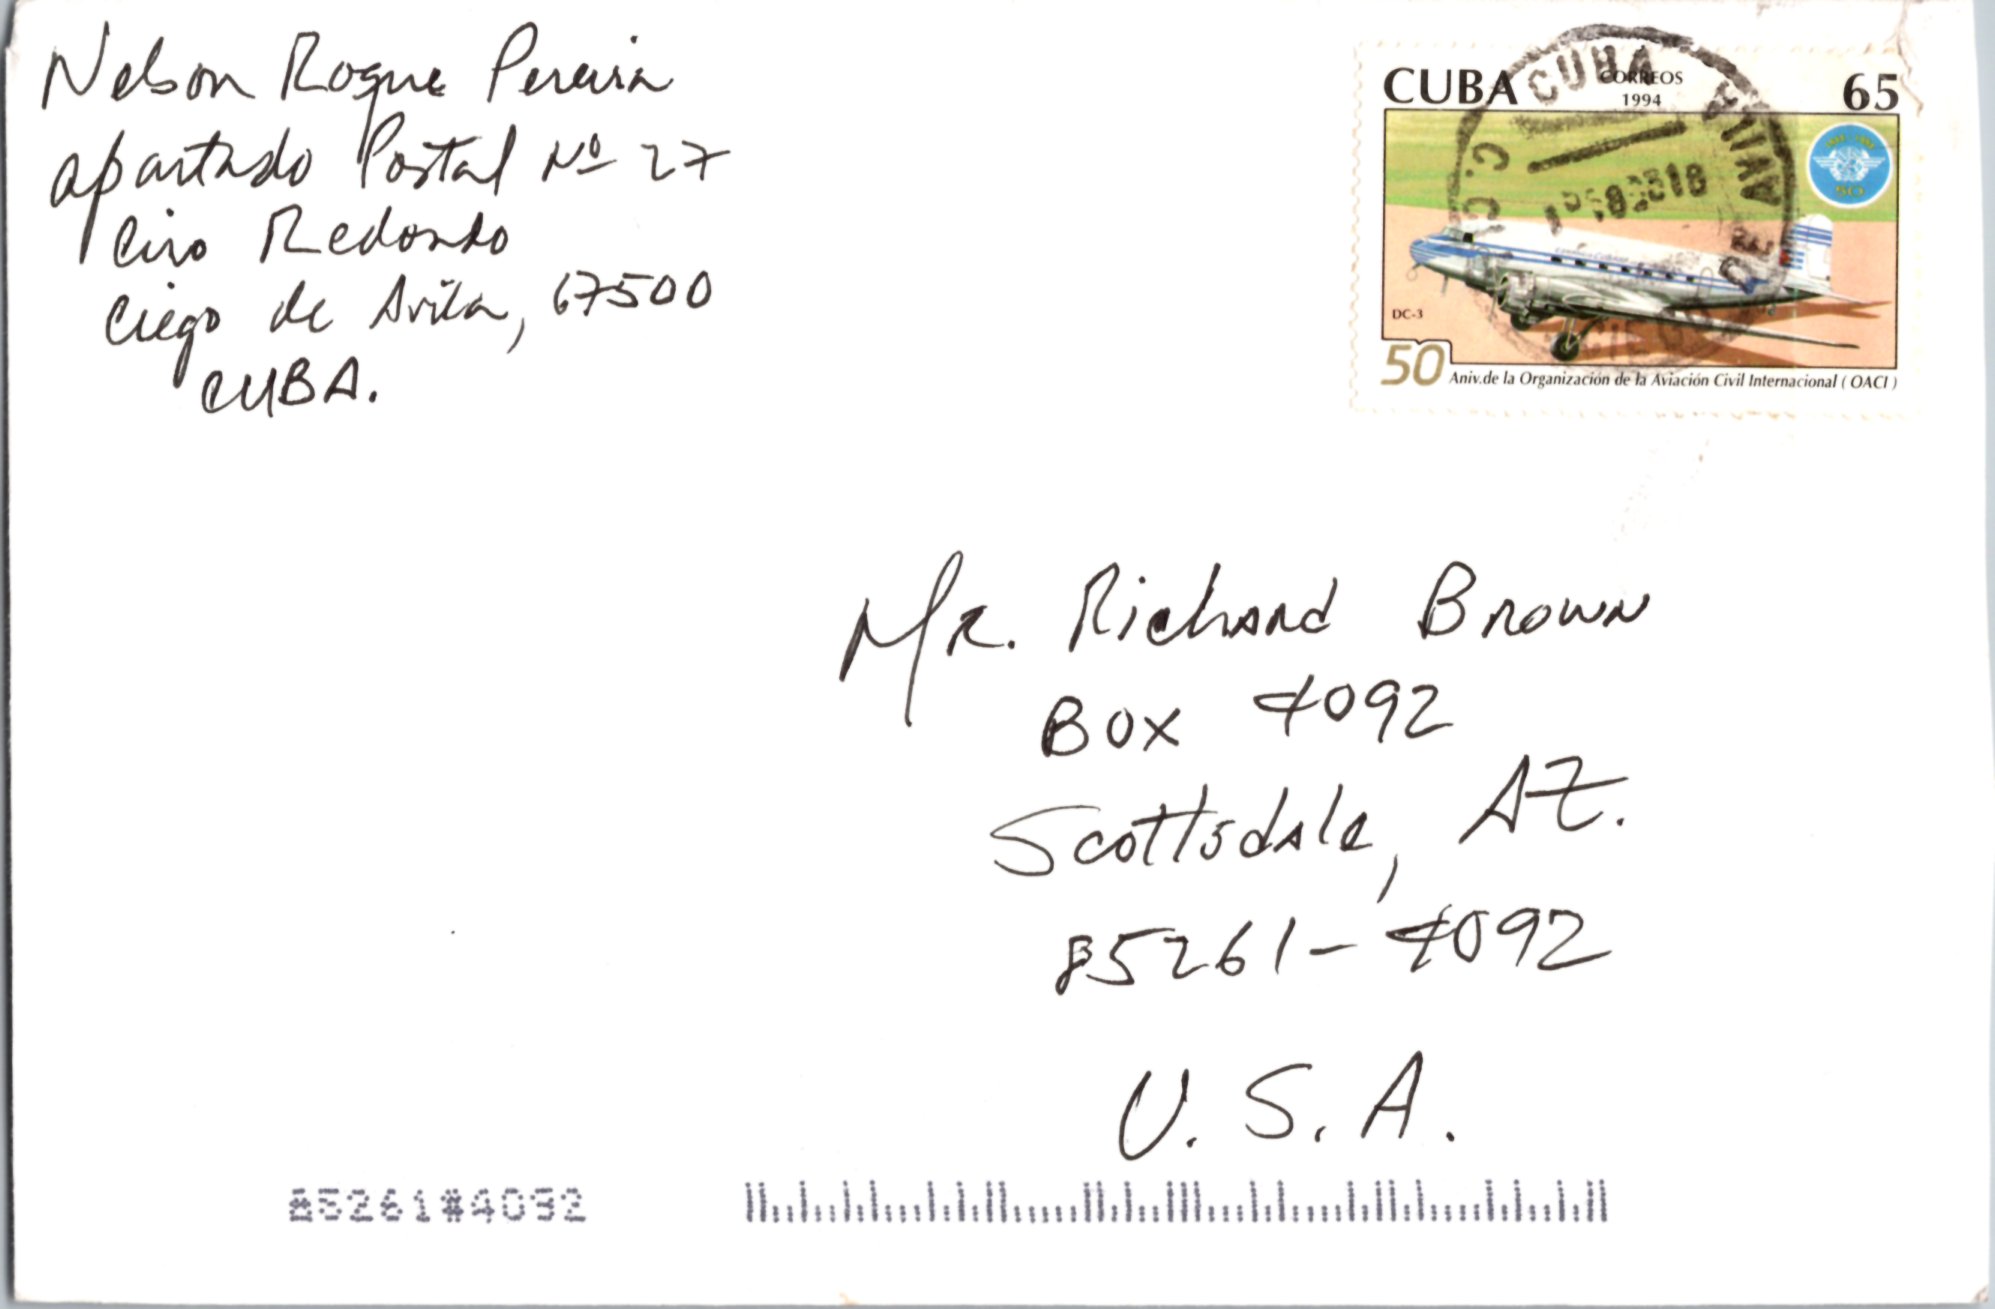 Nelson Roque Pereira
apartado Postal Nº 27
Ciro Redondo
Ciego de Avila, 67500
CUBA.
CUBA CORREOS 65
1994
DC-3
50 Aniv.de la Organización de la Aviación Civil Internacional ( OACI )
CUBA
C.
DE AVILA
CIEGO
50
Mr. Richard Brown
BOX 4092
Scottsdale, AZ.
85261-4092
U.S.A.
85261#4092